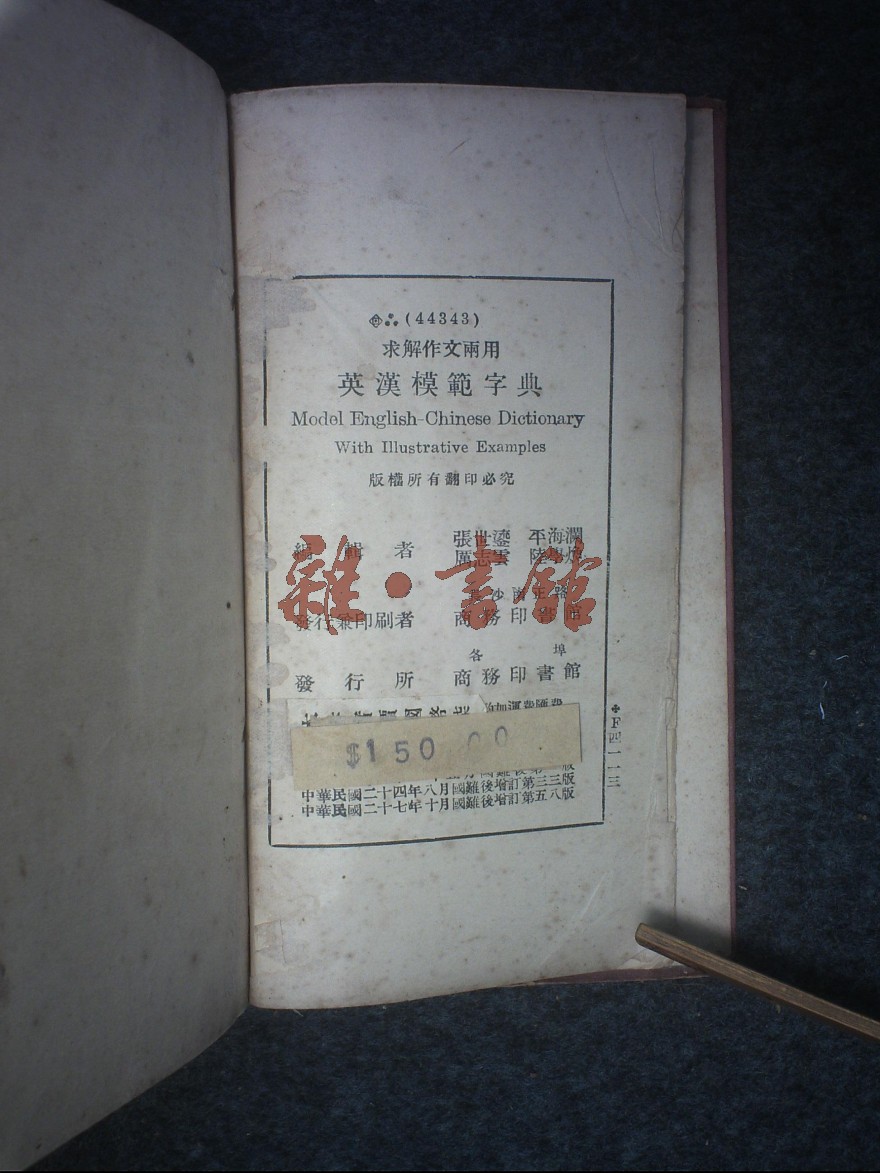 (44343)
求解作文兩用
英漢模範字典
Model English-Chinese Dictionary
With Illustrative Examples
版權所有翻印必究
編輯者
張世鎏 平海瀾
厲志雲 陸
沙南正路
發行兼印刷者 商務印書館
各埠
發行所 商務印書館
$150.00
中華民國二十四年八月國難後增訂第三三版
中華民國二十七年十月國難後增訂第五八版
F四一一三
雜·書館